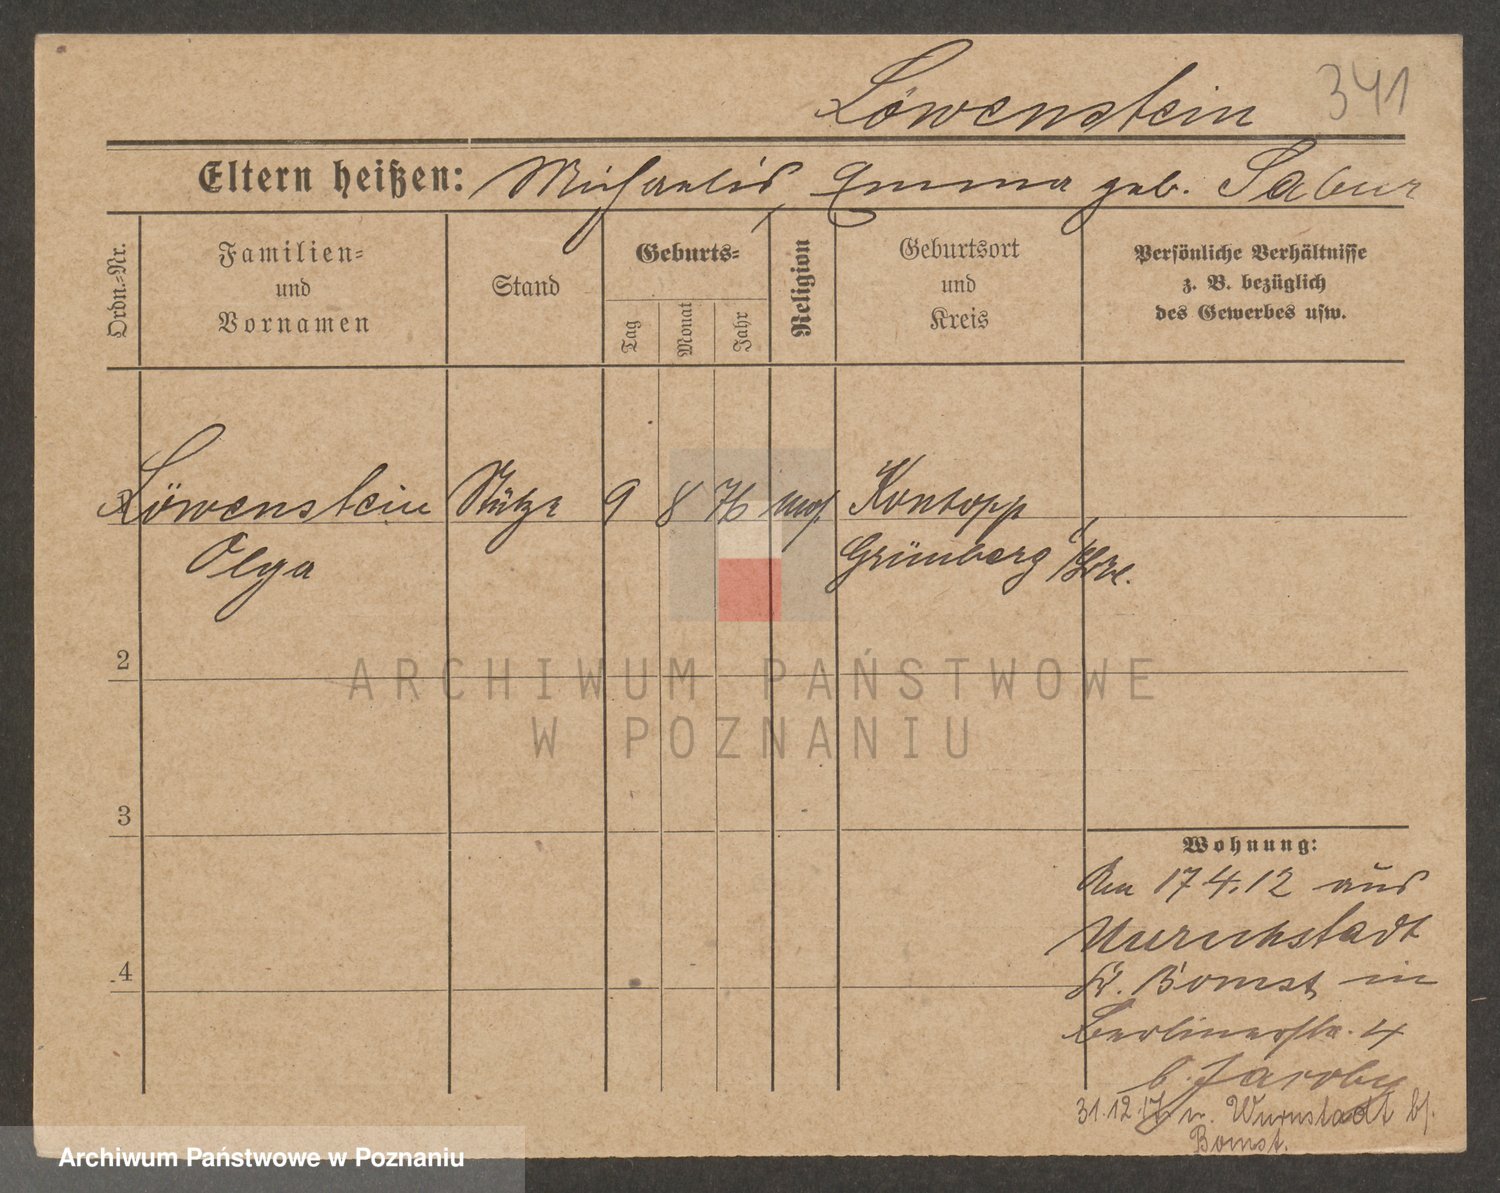 Löwenstein 341
Eltern heißen: Michaelis, Emma geb. Sabur
Ordn.-Nr.
Familien-
und
Vornamen
Stand
Geburts-
Tag
Monat
Jahr
Religion
Geburtsort
und
Kreis
Persönliche Verhältnisse
z. B. bezüglich
des Gewerbes usw.
Löwenstein Stütze 9 8 76 mos. Kontopp
Olga Grünberg i/Schl.
2
3
4
ARCHIWUM PAŃSTWOWE
W POZNANIU
Wohnung:
Am 17 4. 12 aus
Unruhstadt
Kr. Bomst in
Berlinerstr. 4
b. Jacoby
31. 12. 17. n. Unruhstadt
Bomst.
Archiwum Państwowe w Poznaniu